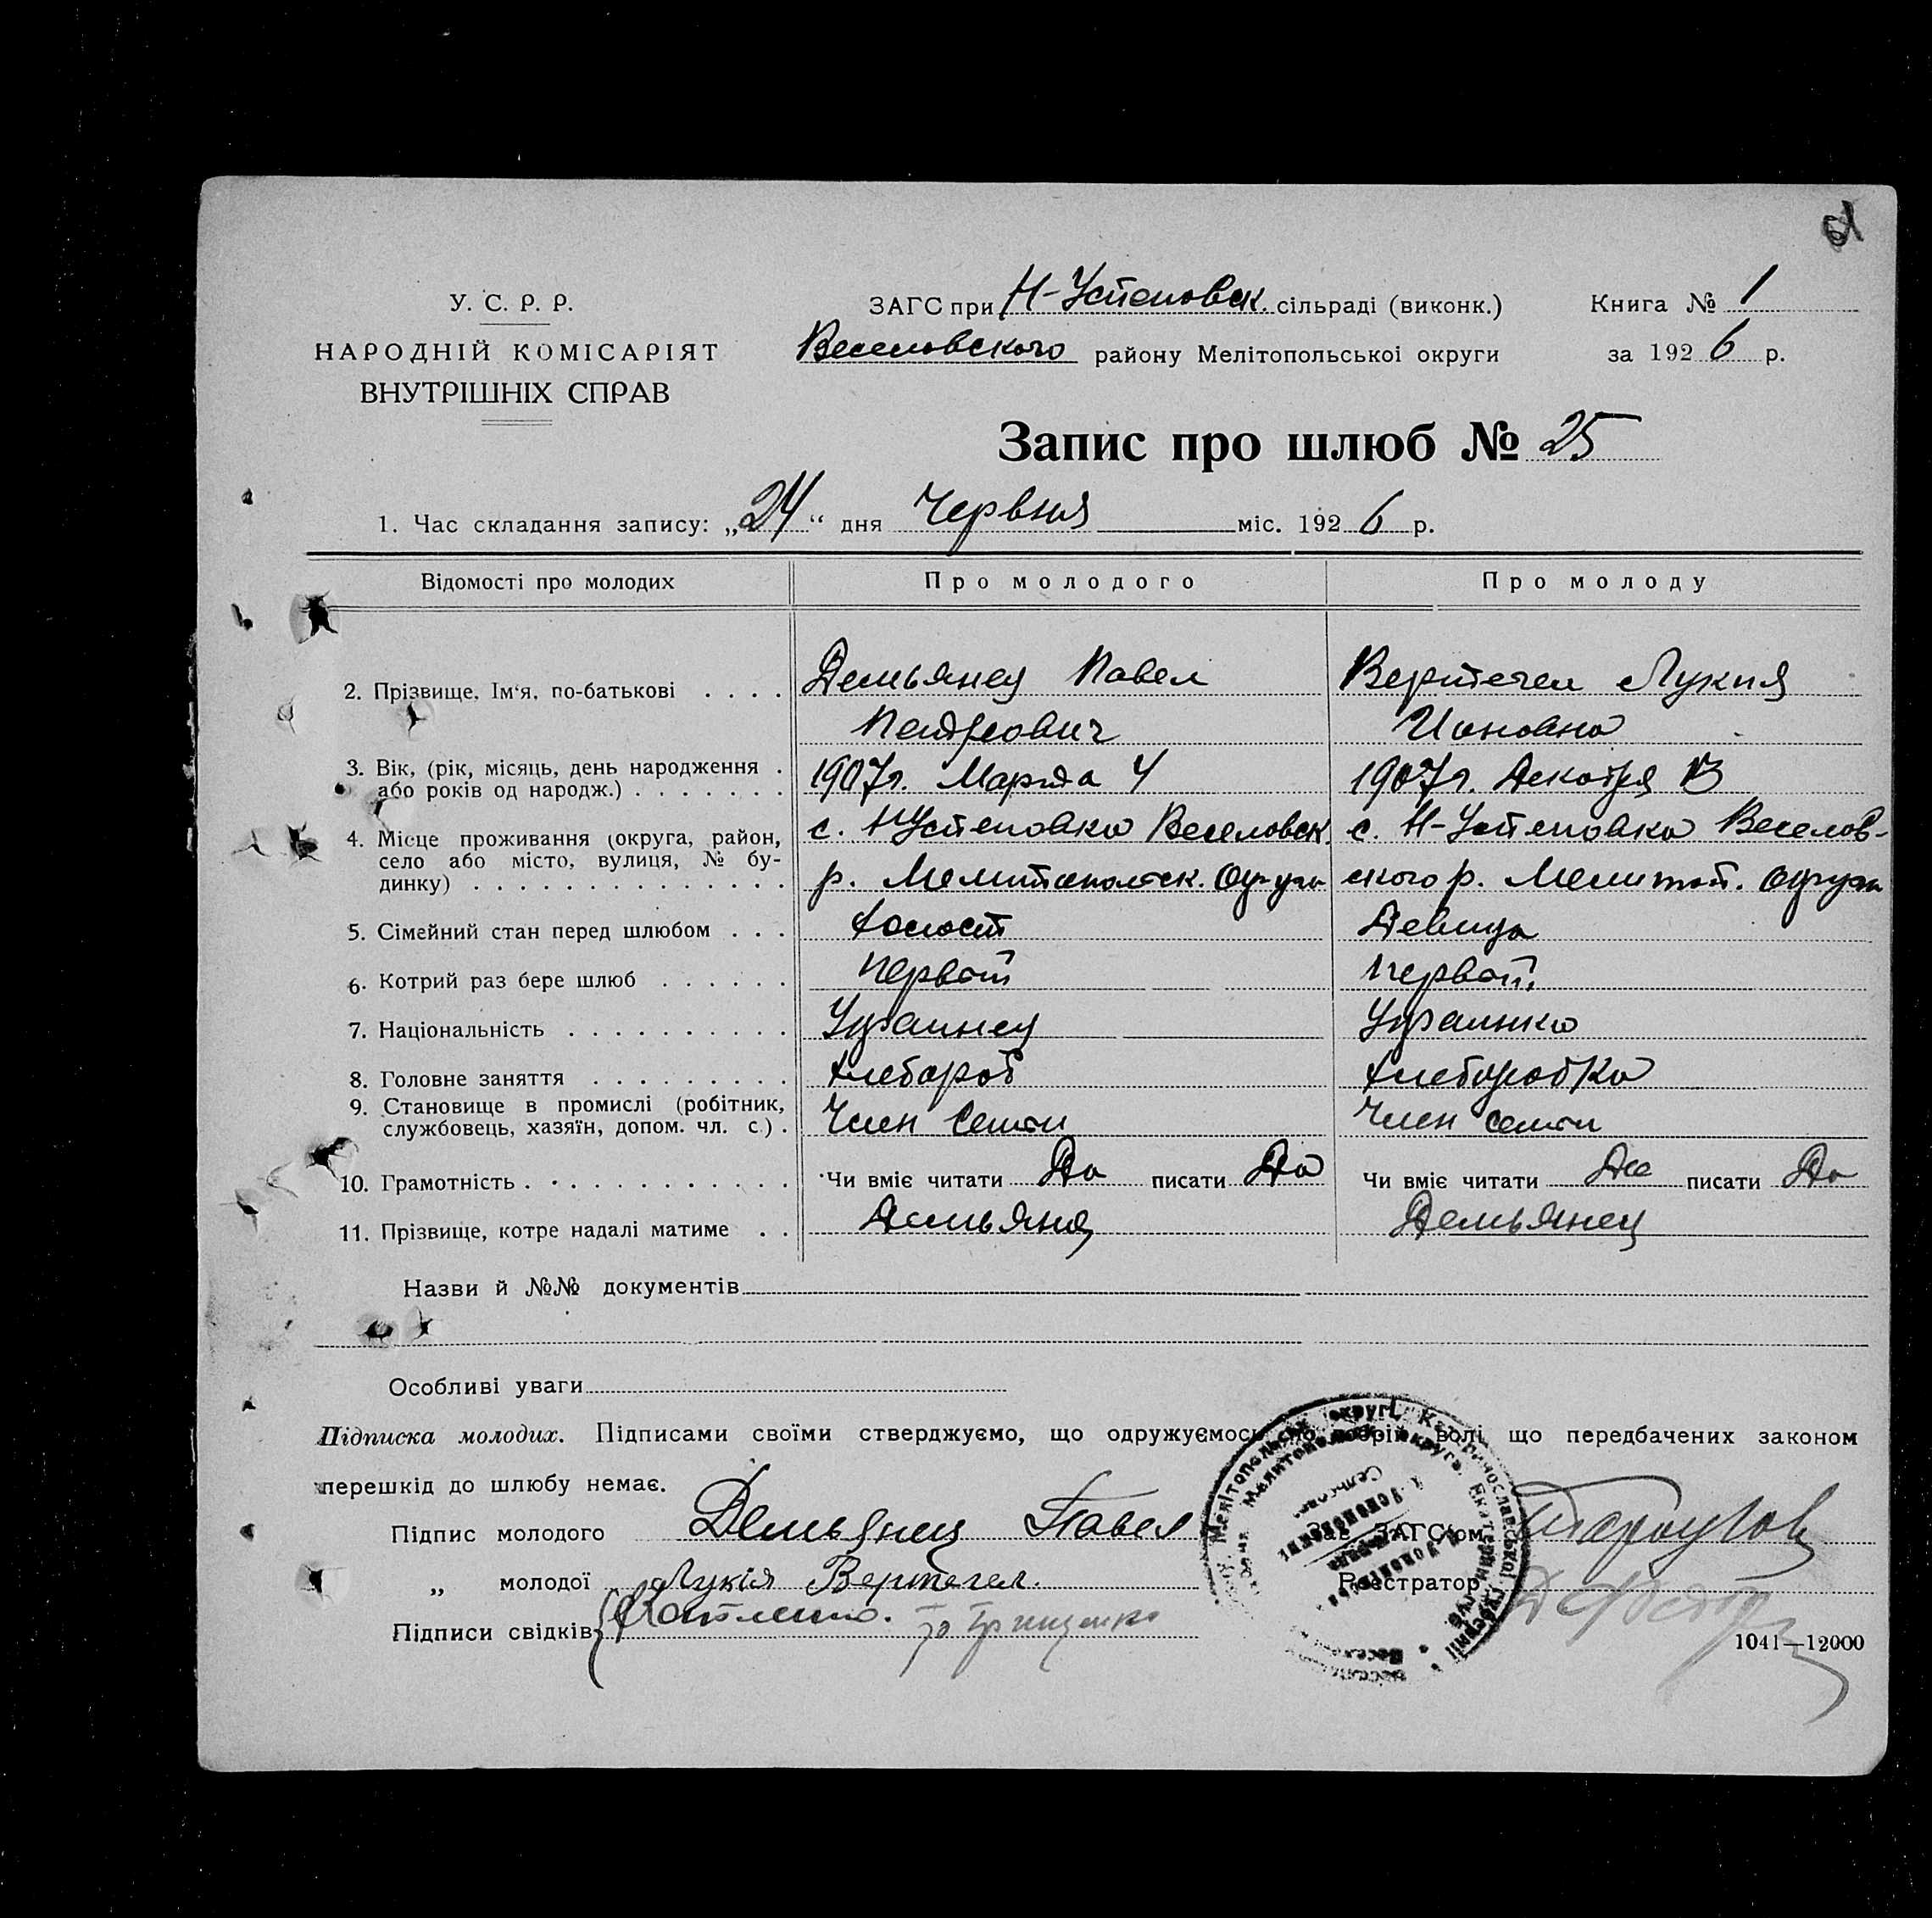 У. С. Р. Р.
НАРОДНІЙ КОМІСАРІЯТ
ВНУТРІШНІХ СПРАВ
ЗАГС при Н-Успеновск. сільраді (виконк.) Книга № 1
Веселовского району Мелітопольскоі округи за 1926 р.
Запис про шлюб № 25
1. Час складання запису: „24“ дня Червня міс. 1926 р.
Відомості про молодих Про молодого Про молоду
2. Прізвище. Ім‘я, по-батькові Демьянец Павел Вертегел Лукия
Петрович Ионовна
3. Вік, (рік, місяць, день народження 1907г. Марта 4 1907г. Декабря 13
або років од народж.)
4. Місце проживання (округа, район, с. НУспеновка Веселовск. с. Н-Успеновка Веселов-
село або місто, вулиця, № бу-
динку) р. Мелитопольск. Округи ского р. Мелитоп. округи
5. Сімейний стан перед шлюбом Холост Девица
6. Котрий раз бере шлюб Первый Первый
7. Національність Украинец Украинка
8. Головне заняття Хлебороб Хлеборобка
9. Становище в промислі (робітник,
службовець, хазяїн, допом. чл. с.) Член Семьи Член семьи
10. Грамотність Чи вміє читати Да писати Да Чи вміє читати Да писати Да
11. Прізвище, котре надалі матиме Демьянец Демьянец
Назви й №№ документів
Особливі уваги
Підписка молодих. Підписами своїми стверджуємо, що одружуємось по добрій волі що передбачених законом
перешкід до шлюбу немає.
Підпис молодого Демьянец Павел Зав. ЗАГС'ом
„ молодої Лукія Вертегел. Реєстратор
Підписи свідків Грищенко
1041—12000